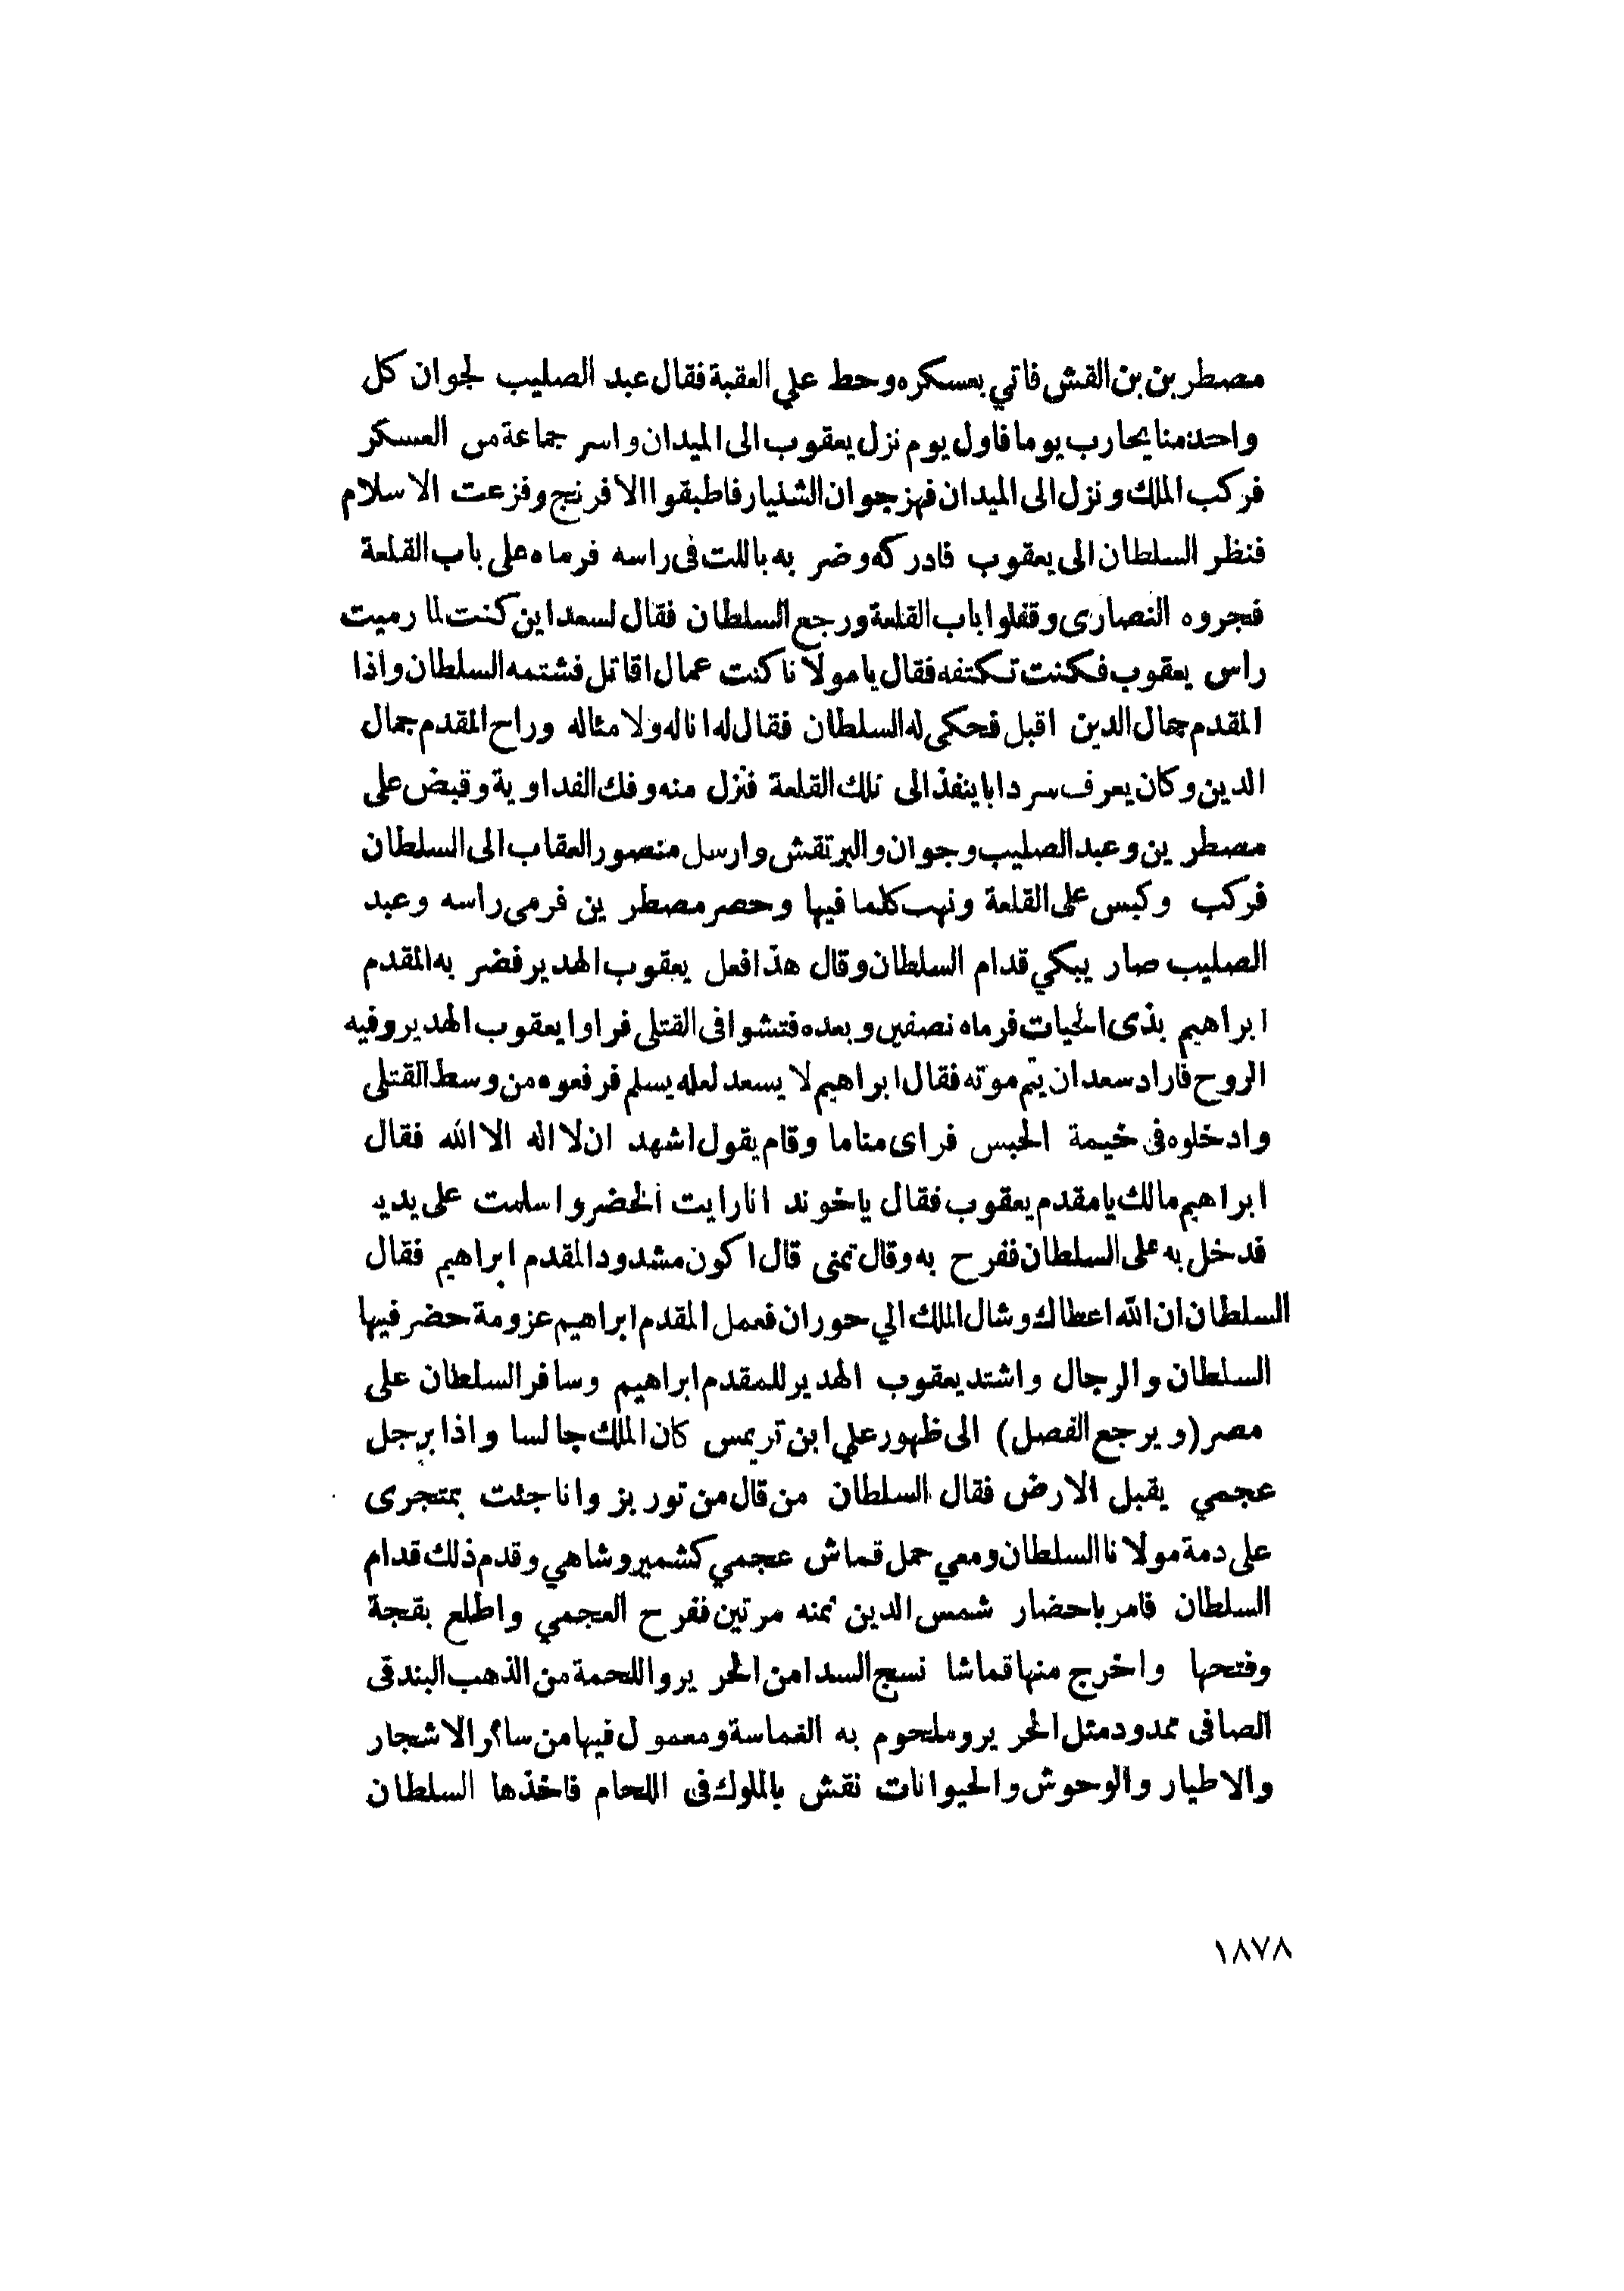 مصطر بن بن القش فاتي بعسكره وحط علي العقبة فقال عبد الصليب لجوان كل
واحد منا يحارب يوما فاول يوم نزل يعقوب الى الميدان واسر جماعة من العسكر
فركب الملك ونزل الى الميدان فهز جوان الشنيار فاطبقوا الافرنج وفزعت الاسلام
فنظر السلطان الى يعقوب فادركه وضر به باللت فى راسه فرماه على باب القلعة
فجروه النصارى وقفلوا باب القلعة ورجع السلطان فقال لسعد اين كنت لما رميت
راس يعقوب فكنت تكتفه فقال يا مولانا كنت عمال اقاتل فشتمه السلطان واذا
المقدم جمال الدين اقبل فحكى له السلطان فقال له اناله ولا مثاله وراح المقدم جمال
الدين وكان يعرف سردابا ينفذ الى تلك القلعة فنزل منه وفك الفداوية وقبض على
مصطر ين وعبد الصليب وجوان والبرتقش وارسل منصور العقاب الى السلطان
فركب وكبس على القلعة ونهب كلما فيها وحصر مصطر ين فرمى راسه وعبد
الصليب صار يبكي قدام السلطان وقال هذا فعل يعقوب الهدير فضر به المقدم
ابراهيم بذى الحيات فرماه نصفين وبعده فتشوا فى القتلى فراوا يعقوب الهدير وفيه
الروح فاراد سعد ان يتم موته فقال ابراهيم لا يسعد لعله يسلم فرفعوه من وسط القتلى
وادخلوه فى خيمة الحبس فراى مناما وقام يقول اشهد ان لا اله الا الله فقال
ابراهيم مالك يا مقدم يعقوب فقال ياخوند انا رايت الخضر واسلمت على يديه
فدخل به على السلطان ففرح به وقال تمنى قال اكون مشدود المقدم ابراهيم فقال
السلطان ان الله اعطاك وشال الملك الي حوران فعمل المقدم ابراهيم عزومة حضر فيها
السلطان والرجال واشتد يعقوب الهدير للمقدم ابراهيم وسافر السلطان على
مصر (ويرجع الفصل) الى ظهور علي ابن تريمس كان الملك جالسا واذا برجل
عجمي يقبل الارض فقال السلطان من قال من توريز وانا جئت بمتجرى
على دمة مولانا السلطان ومعي حمل قماش عجمي كشمير وشاهي وقدم ذلك قدام
السلطان فامر باحضار شمس الدين ثمنه مرتين ففرح العجمي واطلع بقجة
وفتحها واخرج منها قماشا نسج السدا من الحرير واللحمة من الذهب البندقى
الصافى ممدود مثل الحرير وملحوم به القماسة ومعمول فيها من سائر الاشجار
والاطيار والوحوش والحيوانات نقش بالملوك فى اللحام فاخذها السلطان
١٨٧٨